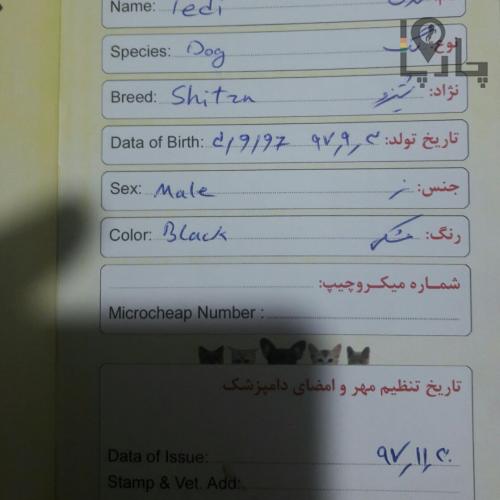 Name: Tedi
Species: Dog نوع: سگ
Breed: Shitzu نژاد: شیتزو
Data of Birth: 2/9/97 ۹۷,۹,۲ تاریخ تولد:
Sex: Male جنس: نر
Color: Black رنگ: مشکی
شماره میکروچیپ:
Microcheap Number :
تاریخ تنظیم مهر و امضای دامپزشک
Data of Issue: ۹۷,۱۱,۲۰
Stamp & Vet. Add:
چارپا